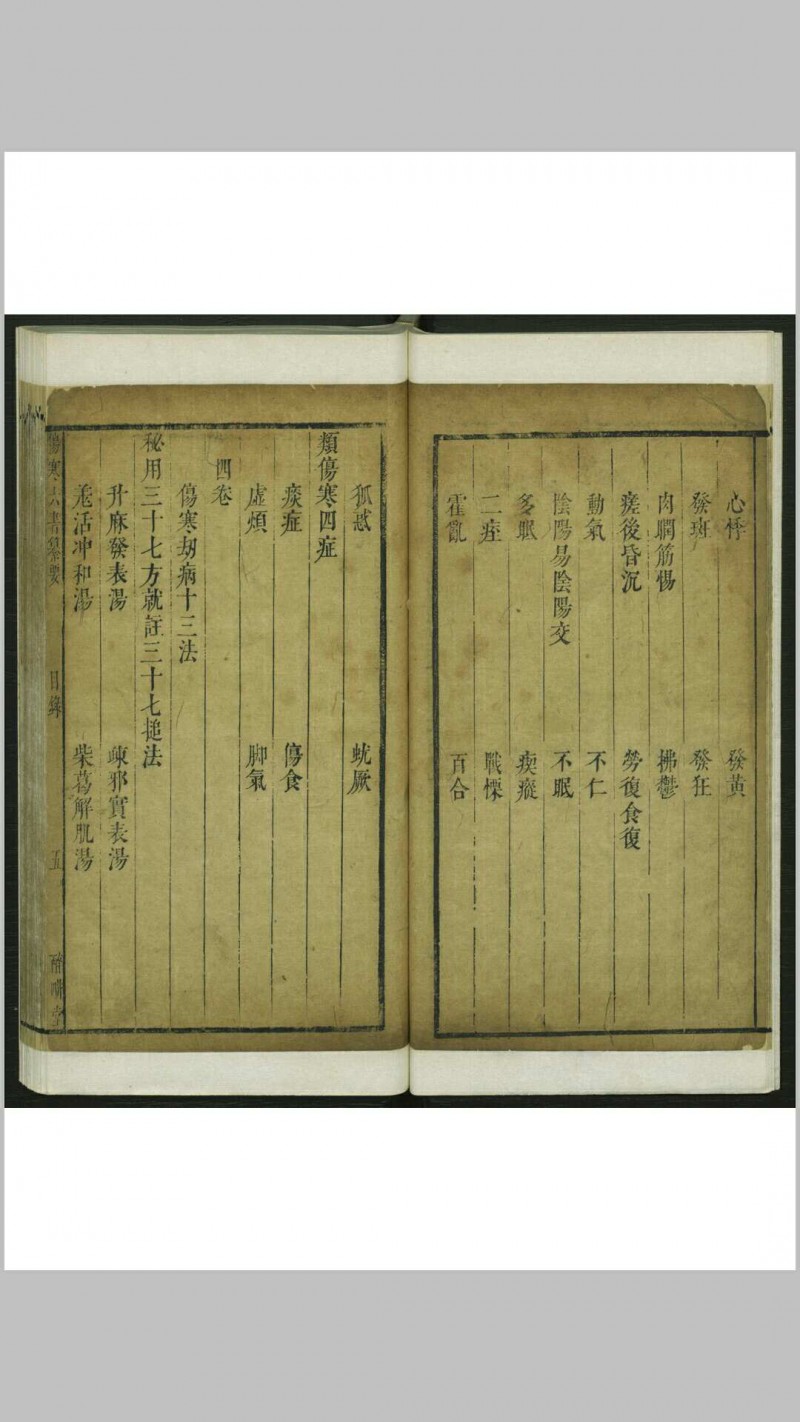 心悸 發黃
發斑 發狂
肉瞤筋惕 拂鬱
瘥後昏沉 勞復食復
動氣 不仁
陰陽易陰陽交 不眠
多眠 瘈瘲
二痓 戰慄
霍亂 百合
狐惑 蚘厥
類傷寒四症
痰症 傷食
虛煩 脚氣
四卷
傷寒刼病十三法
秘用三十七方就註三十七搥法
升麻發表湯 疎邪實表湯
羗活冲和湯 柴葛解肌湯
傷寒六書纂要 目錄 五